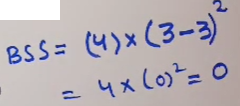 BSS = (4) × (3-3)²
= 4 × (0)² = 0